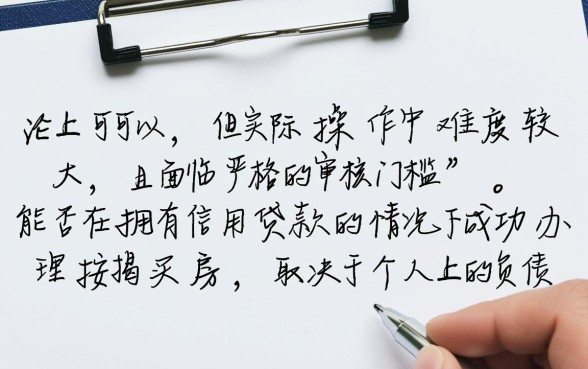 论上可可以，但实际操作中难度较
大，且面临严格的审核门槛”。
能否在拥有信用贷款的情况下成功办
理按揭买房，取决于个人上的负债